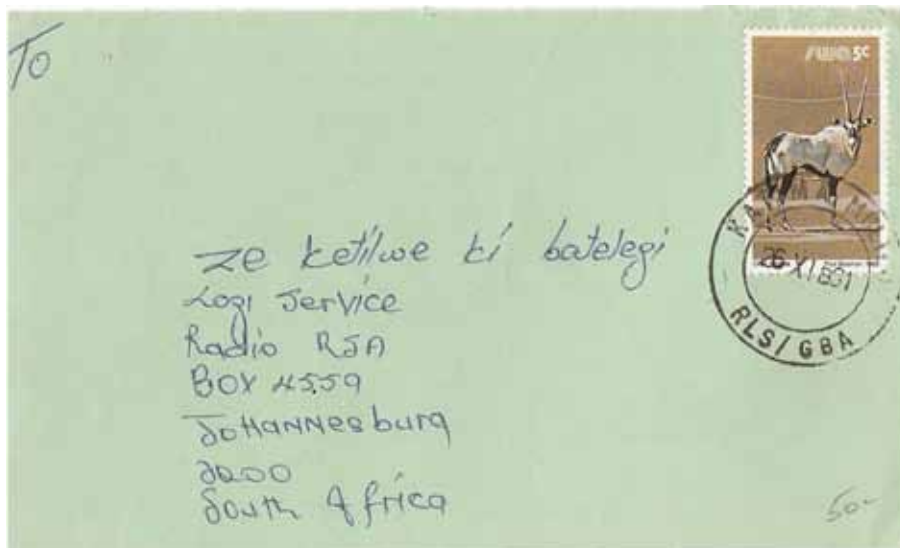 To
SWA 5c
26 XI 81
RLS/GBA
ze ketilwe ki batelegi
Lozi Service
Radio RSA
BOX 4559
JoHANNesburg
2000
South Africa
50-